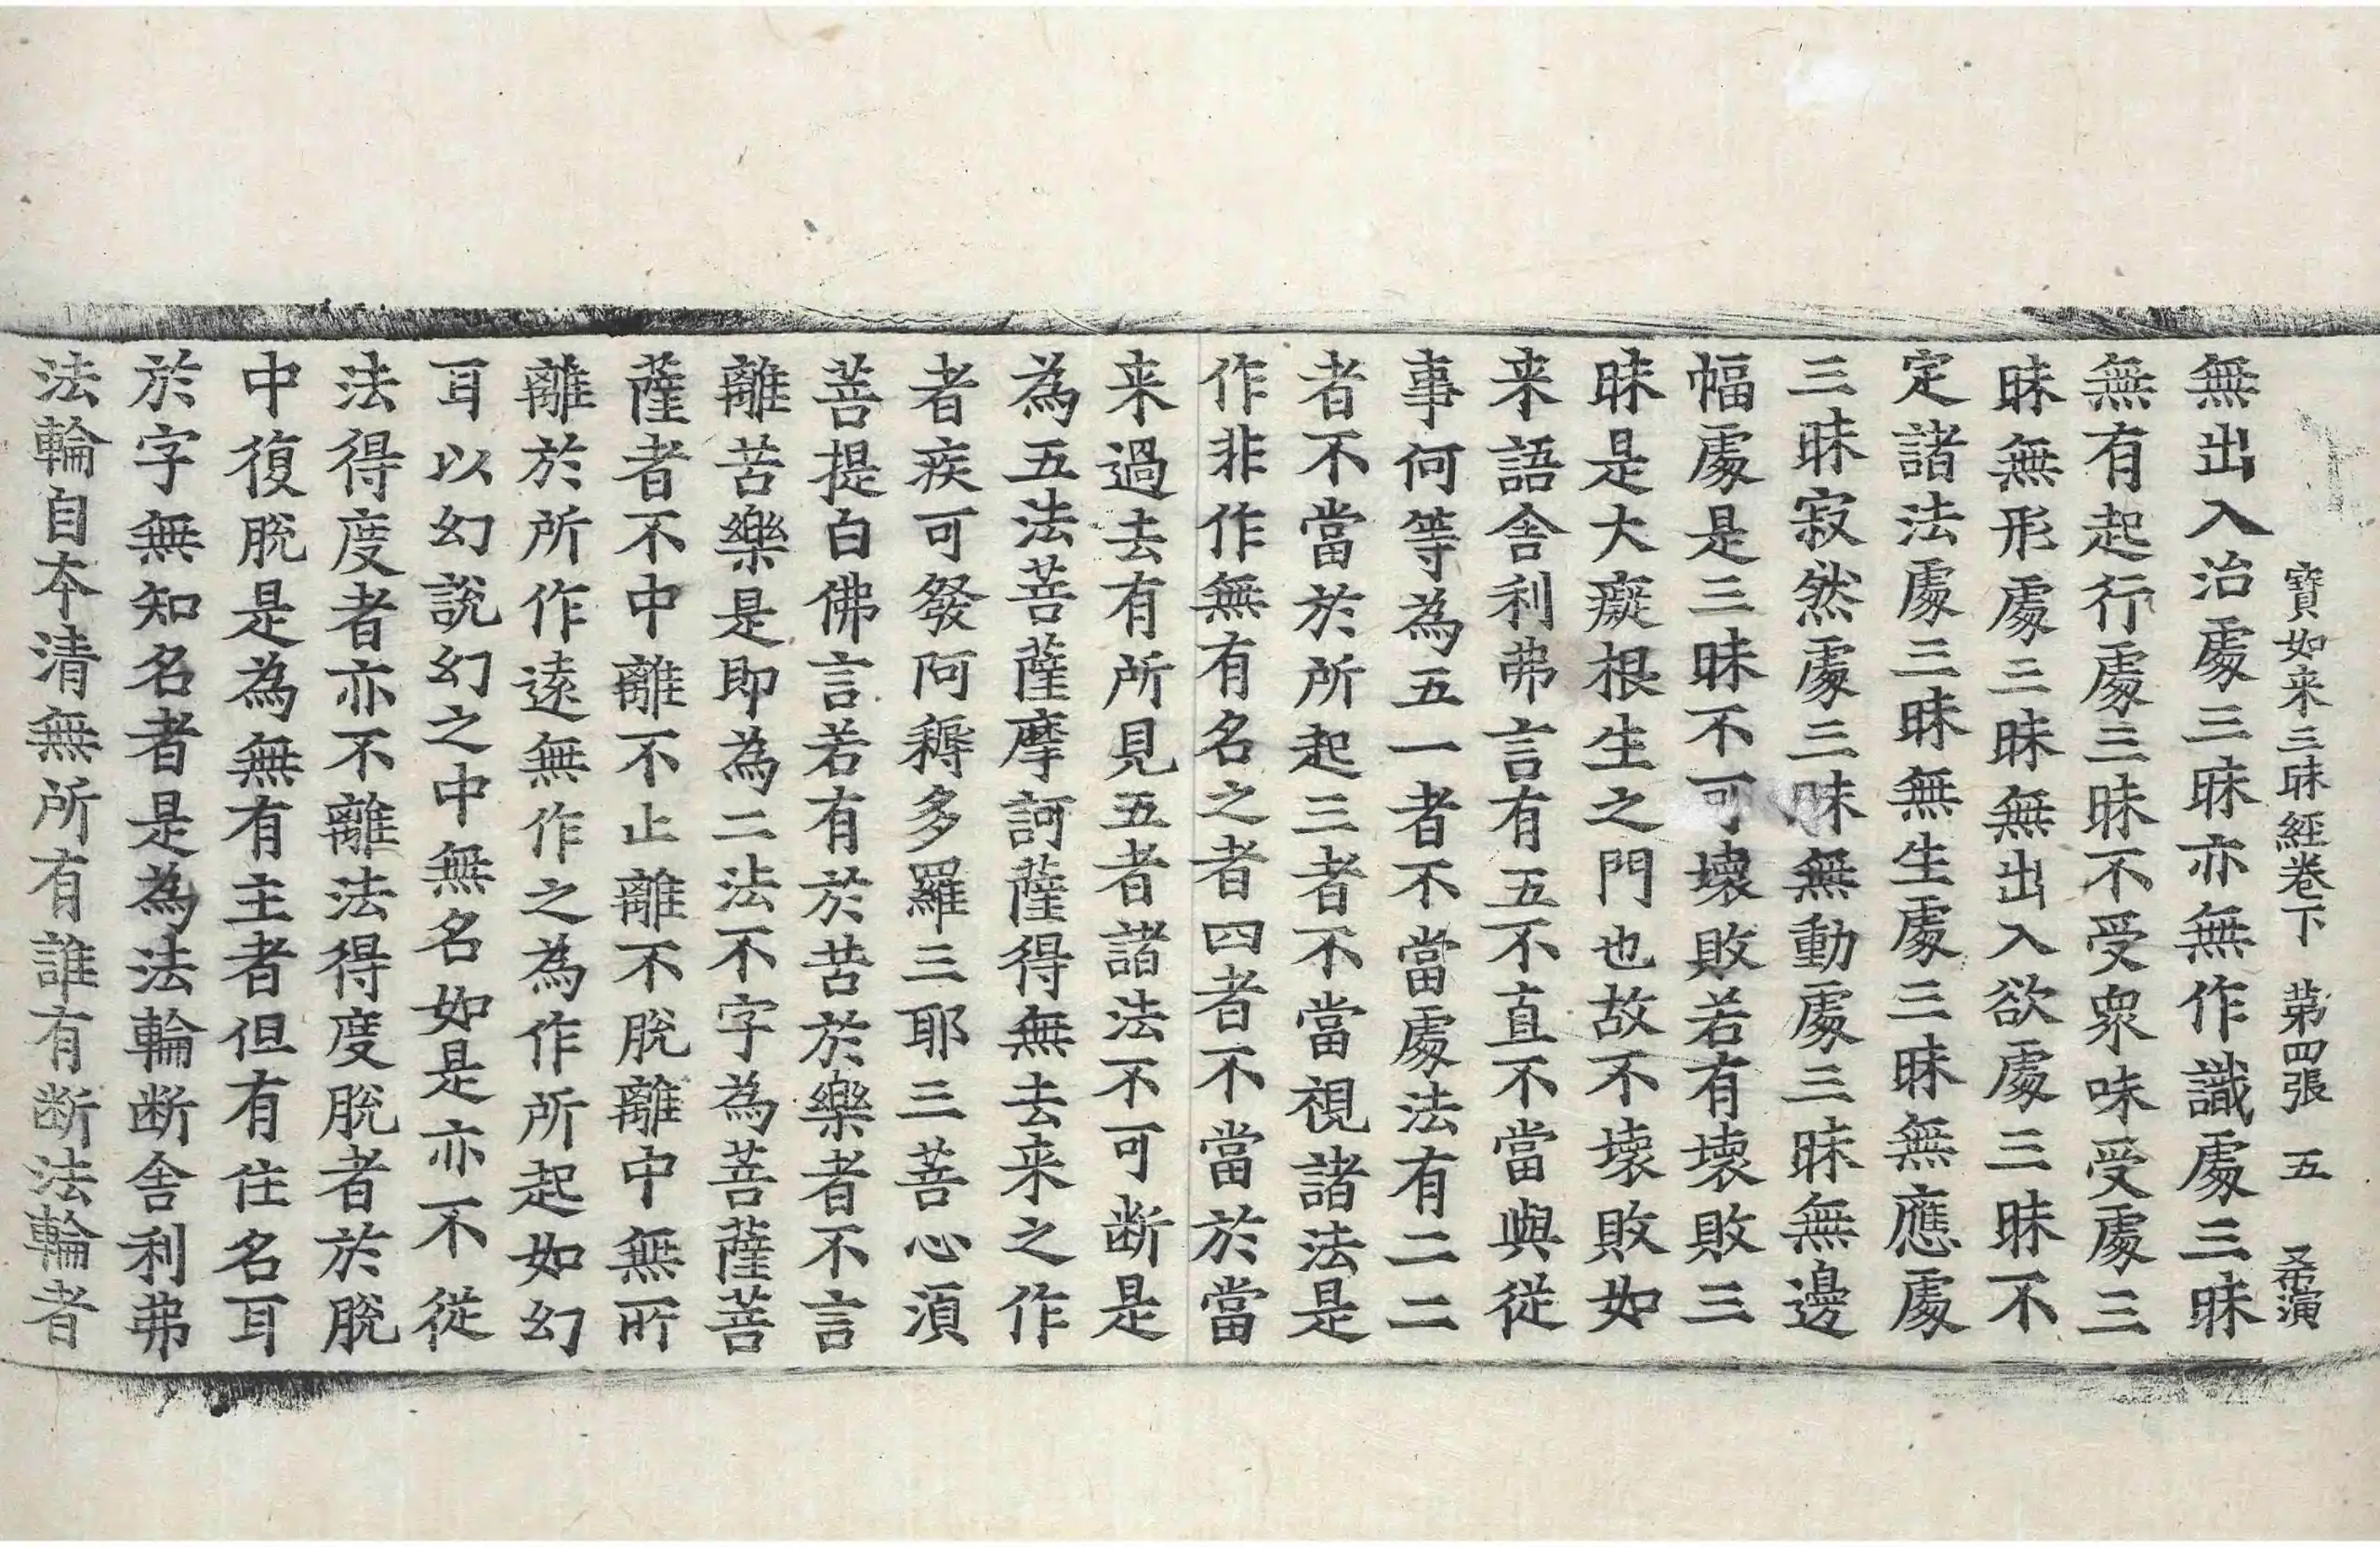 寶如来三昧經卷下　第四張　五　
無出入治處三昧亦無作識處三昧
無有起行處三昧不受衆味受處三
昧無形處三昧無出入欲處三昧不
定諸法處三昧無生處三昧無應處
三昧寂然處三昧無動處三昧無邊
幅處是三昧不可壞敗若有壞敗三
昧是大癡根生之門也故不壊敗如
来語舍利弗言有五不直不當與從
事何等為五一者不當處法有二二
者不當於所起三者不當視諸法是
作非作無有名之者四者不當於當
来過去有所見五者諸法不可断是
為五法菩薩摩訶薩得無去来之作
者疾可發阿耨多羅三耶三菩心湏
菩提白佛言若有於苦於樂者不言
離苦樂是即為二法不字為菩薩菩
薩者不中離不止離不脫離中無所
離於所作遠無作之為作所起如幻
耳以幻說幻之中無名如是亦不從
法得度者亦不離法得度脫者於脫
中復脫是為無有主者但有住名耳
於字無知名者是為法輪断舍利弗
法輪自本清無所有誰有断法輪者